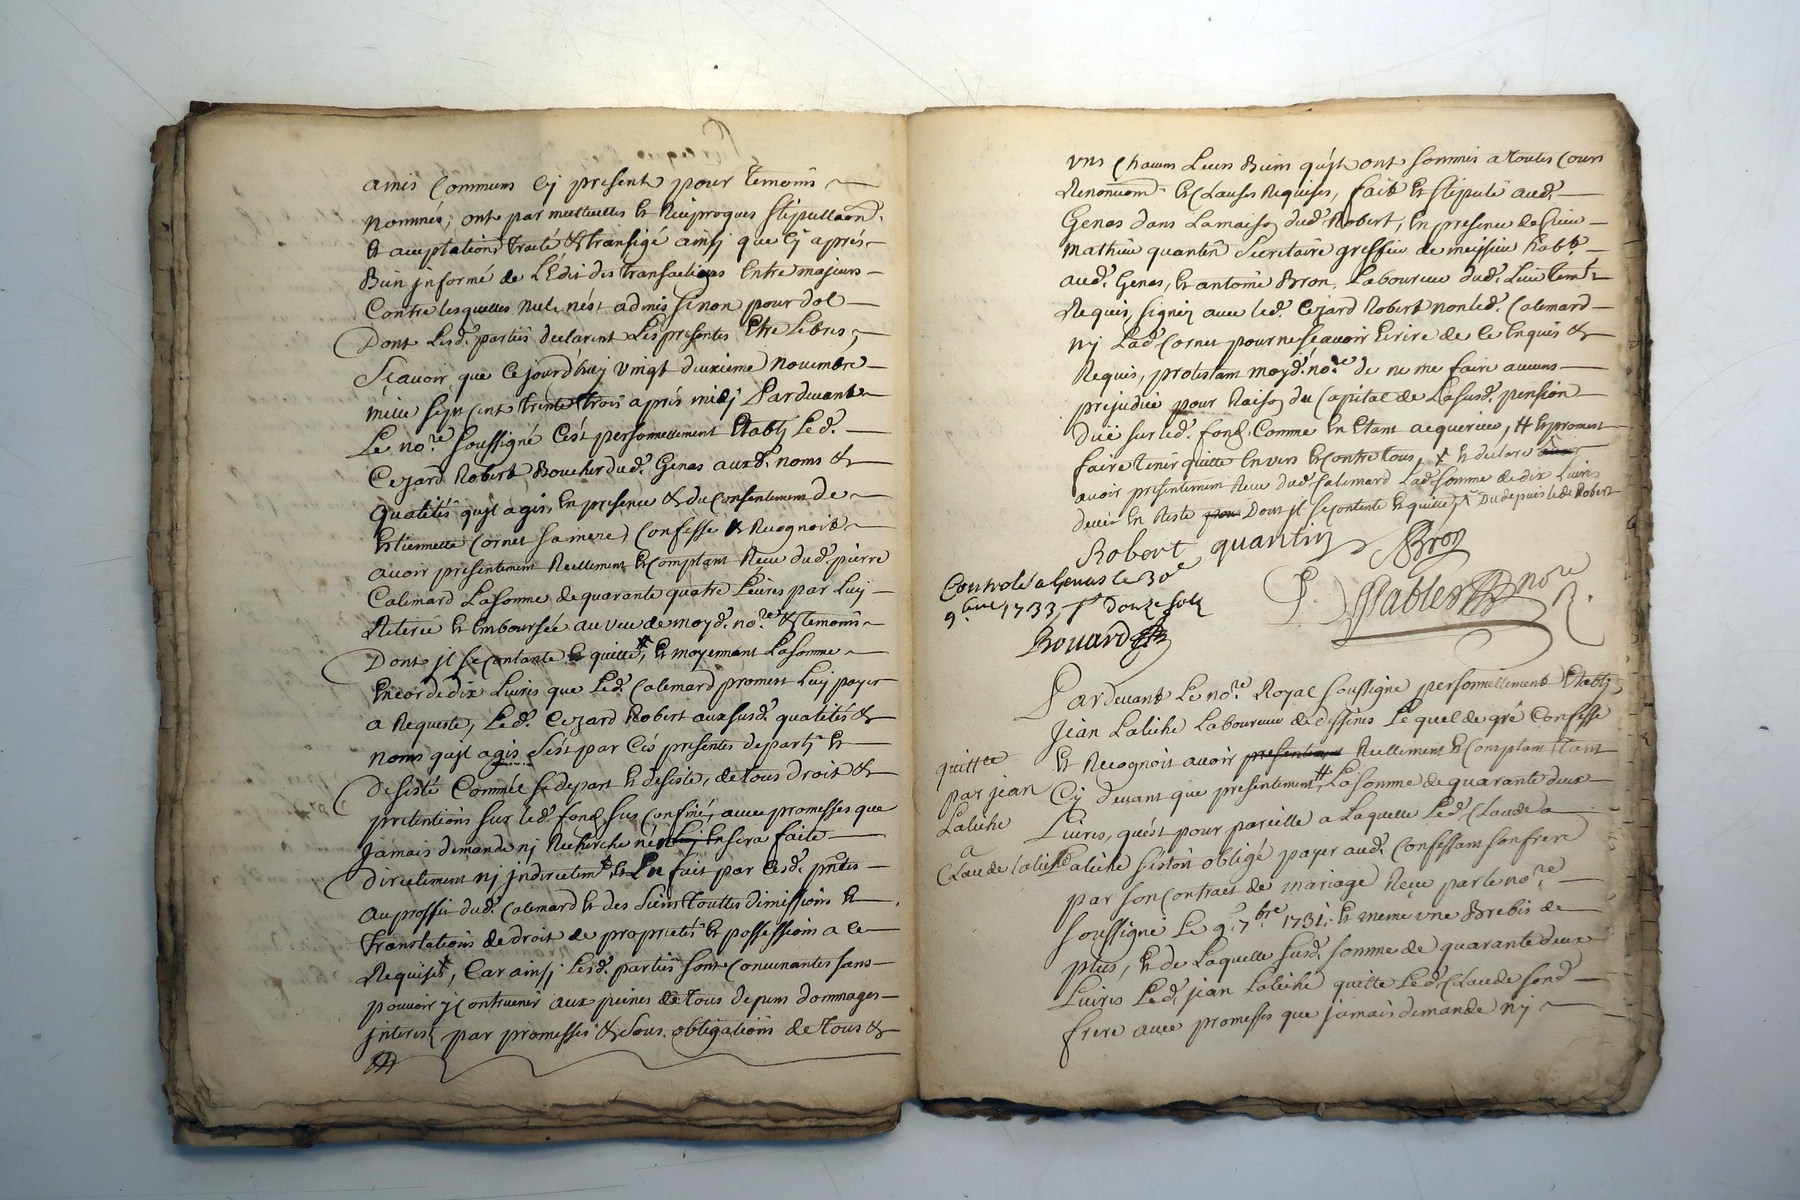 amis Communs Cy present pour temoins
Nommés, ont par mutuelles et Reciproques stipullaon.
et acceptations traité & transigé ainsy que Cy aprés
Bien informé de L'Edit des transactions Entre majeurs
Contre lesquelles Nul n'est admis sinon pour dol
Dont Lesd. parties declarent Les presentes Etre Libres,
Scavoir que Cejourd'huy vingt deuxieme Novembre
mille sept cent trente trois aprés midy Pardevant
Le no.re soussigné C'est personnellement Etably Led.
Cezard Robert Boucher dud. Genas auxd. noms &
qualités qu'il agis, En presence & du Consentement de
Etiennette Cornet sa mere, Confesse & Recognoit
avoir presentement Reellement et Comptant Receu dud. pierre
Calemard La somme de quarante quatre Livres par Luy
Retirée et Emboursée au veu de moyd. no.re & temoins
Dont jl se contante et quitte, et moyennant La somme
Encor de dix Livres que Led. Calemard promest Luy payer
a Requeste, Led. Cezard Robert aux susd. qualités &
Noms qu'jl agis s'est par Ces presentes departy et
Desisté Comme se depart et desiste, de tous droit &
pretentions sur led. fond sus Confiné, avec promesses que
Jamais demande ny Recherche n'en sera faite
directement ny jndirectem.t et En fait par Cesd. pntes
Au proffit dud. Calemard et des siens touttes dimissions et
translations de droit de proprietés et possessions a ce
Requises, Car ainsy Lesd. parties sont Convenantes sans
pouvoir y Contrevenir aux peines de tous depens dommages
jnterest par promesses & sous obligations de tous &
vns Chacuns Leurs Biens qu'jls ont sommis a toutes Cours
Renonciaons et Clauses Requises, fait et stipulé aud.
Genas dans La maison dud. Robert, En presence de sieur
Mathieu quantin Secretaire greffier de meissieu hab.t
aud. Genas, et antoine Bron Laboureur dud. Lieu tem.s
Requis, signez avec led. Cezard Robert non led. Calemard
ny Lad. Cornet pour ne scavoir Ecrire de ce Enquis &
Requis, protestant moyd. no.re de ne me faire aucuns
prejudice pour Raison du Capital de La susd. pension
Düe sur led. fond. Comme En Etant acquereur, # et promest
faire tenir quitte Envers et Contre tous, et declare
avoir presentement Receu dud. Calemard Lad. somme de dix Livres
devüe En Reste Dont jl se contente et quitte, Du depuis led. Robert
Robert quantin Bron
no.re
Controlé a Genas le 30e
9.bre 1733, douze sols
Bouard
Pardevant Le no.re Royal soussigné personnellement Etably,
Jean Laliche Laboureur de dessines Lequel de gré Confesse
et Recognoit avoir Reellement et Comptant tant
Cy devant que presentement, La somme de quarante deux
Livres, qu'est pour pareille a Laquelle Led. Claude
quittce
par jean
Laliche
a
Claude laliche
Laliche s'estoit obligé payer aud. Confessant son frere
par son Contract de mariage Receu par le no.re
soussigné Le 9. 7.bre 1731. et meme vne Brebis de
plus, et de Laquelle susd. somme de quarante deux
Livres Led. jean Laliche quitte Led. Claude sond.
frere avec promesses que jamais demande ny